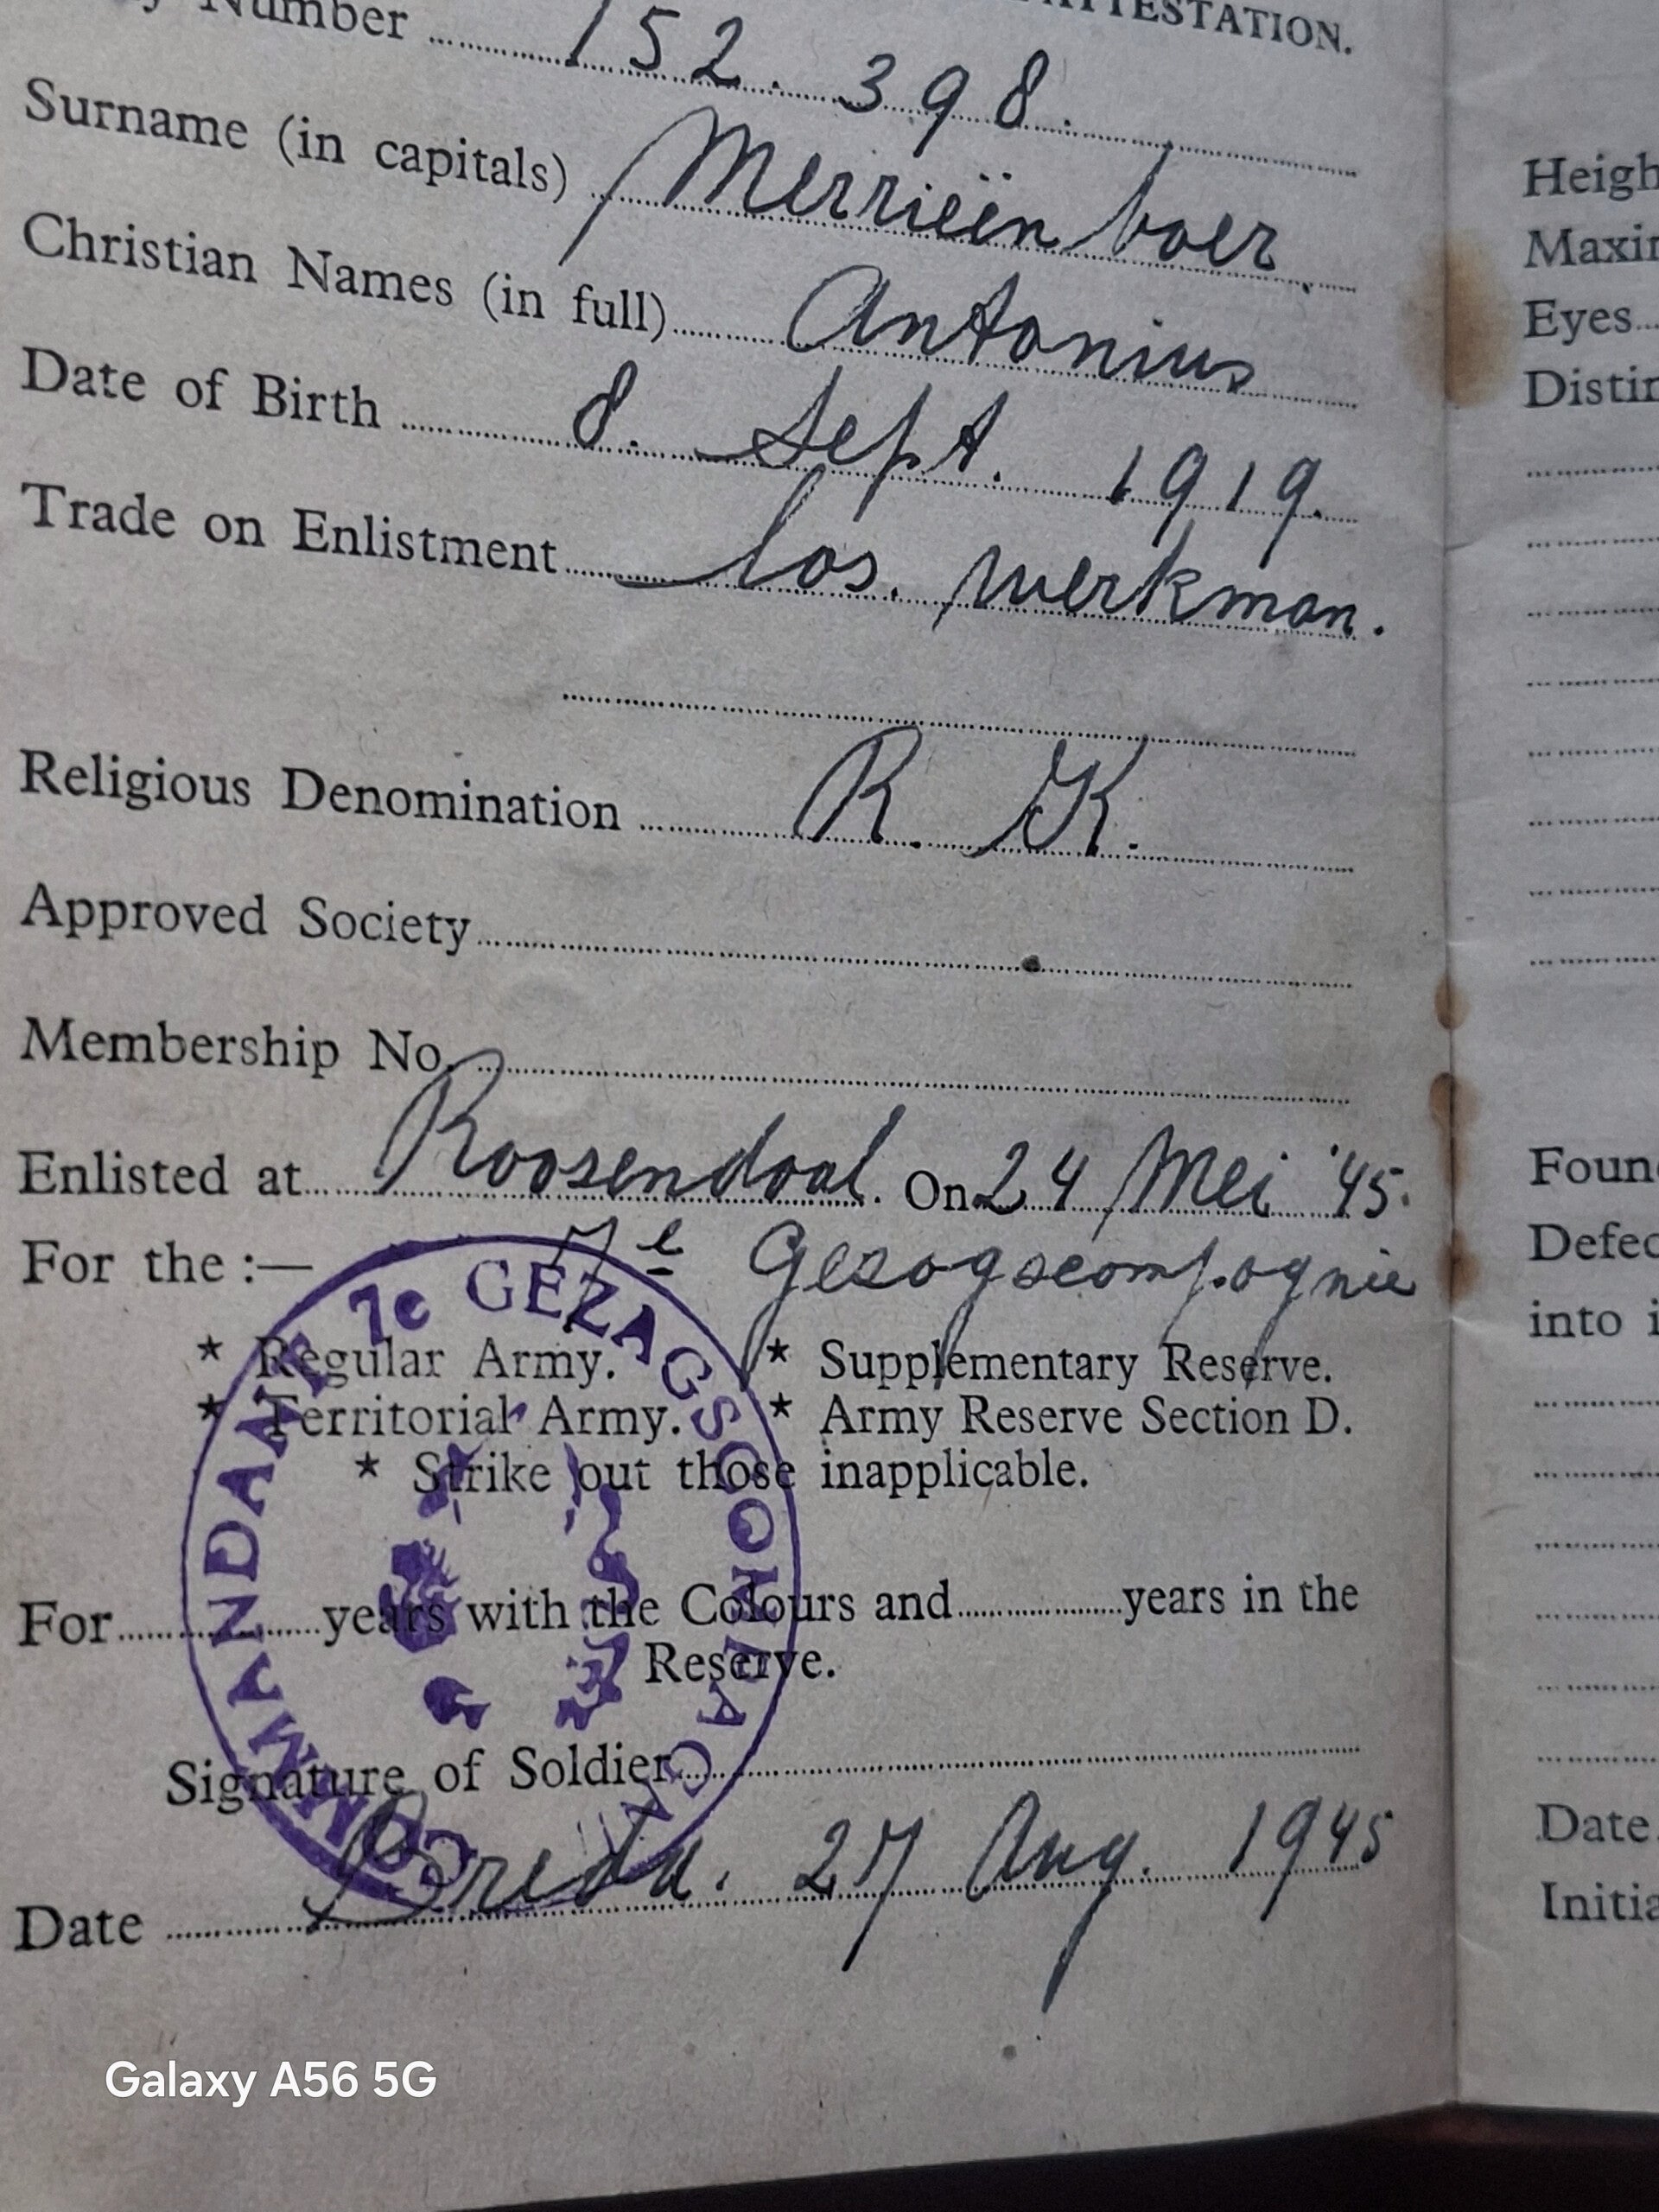 ATTESTATION.
Number 152.398.
Surname (in capitals) Merrieënboer
Christian Names (in full) Antonius
Date of Birth 8. Sept. 1919.
Trade on Enlistment los. werkman.
Religious Denomination R. K.
Approved Society
Membership No.
Enlisted at Roosendaal. On 24 Mei '45.
For the :— 7e Gezagscompagnie
* Regular Army. * Supplementary Reserve.
* Territorial Army. * Army Reserve Section D.
* Strike out those inapplicable.
For years with the Colours and years in the
Reserve.
Signature of Soldier
Date Breda. 27 Aug. 1945
COMMANDANT 7e GEZAGSCOMPA
Galaxy A56 5G
Heigh
Maxi
Eyes
Distin
Foun
Defec
into i
Date
Initia